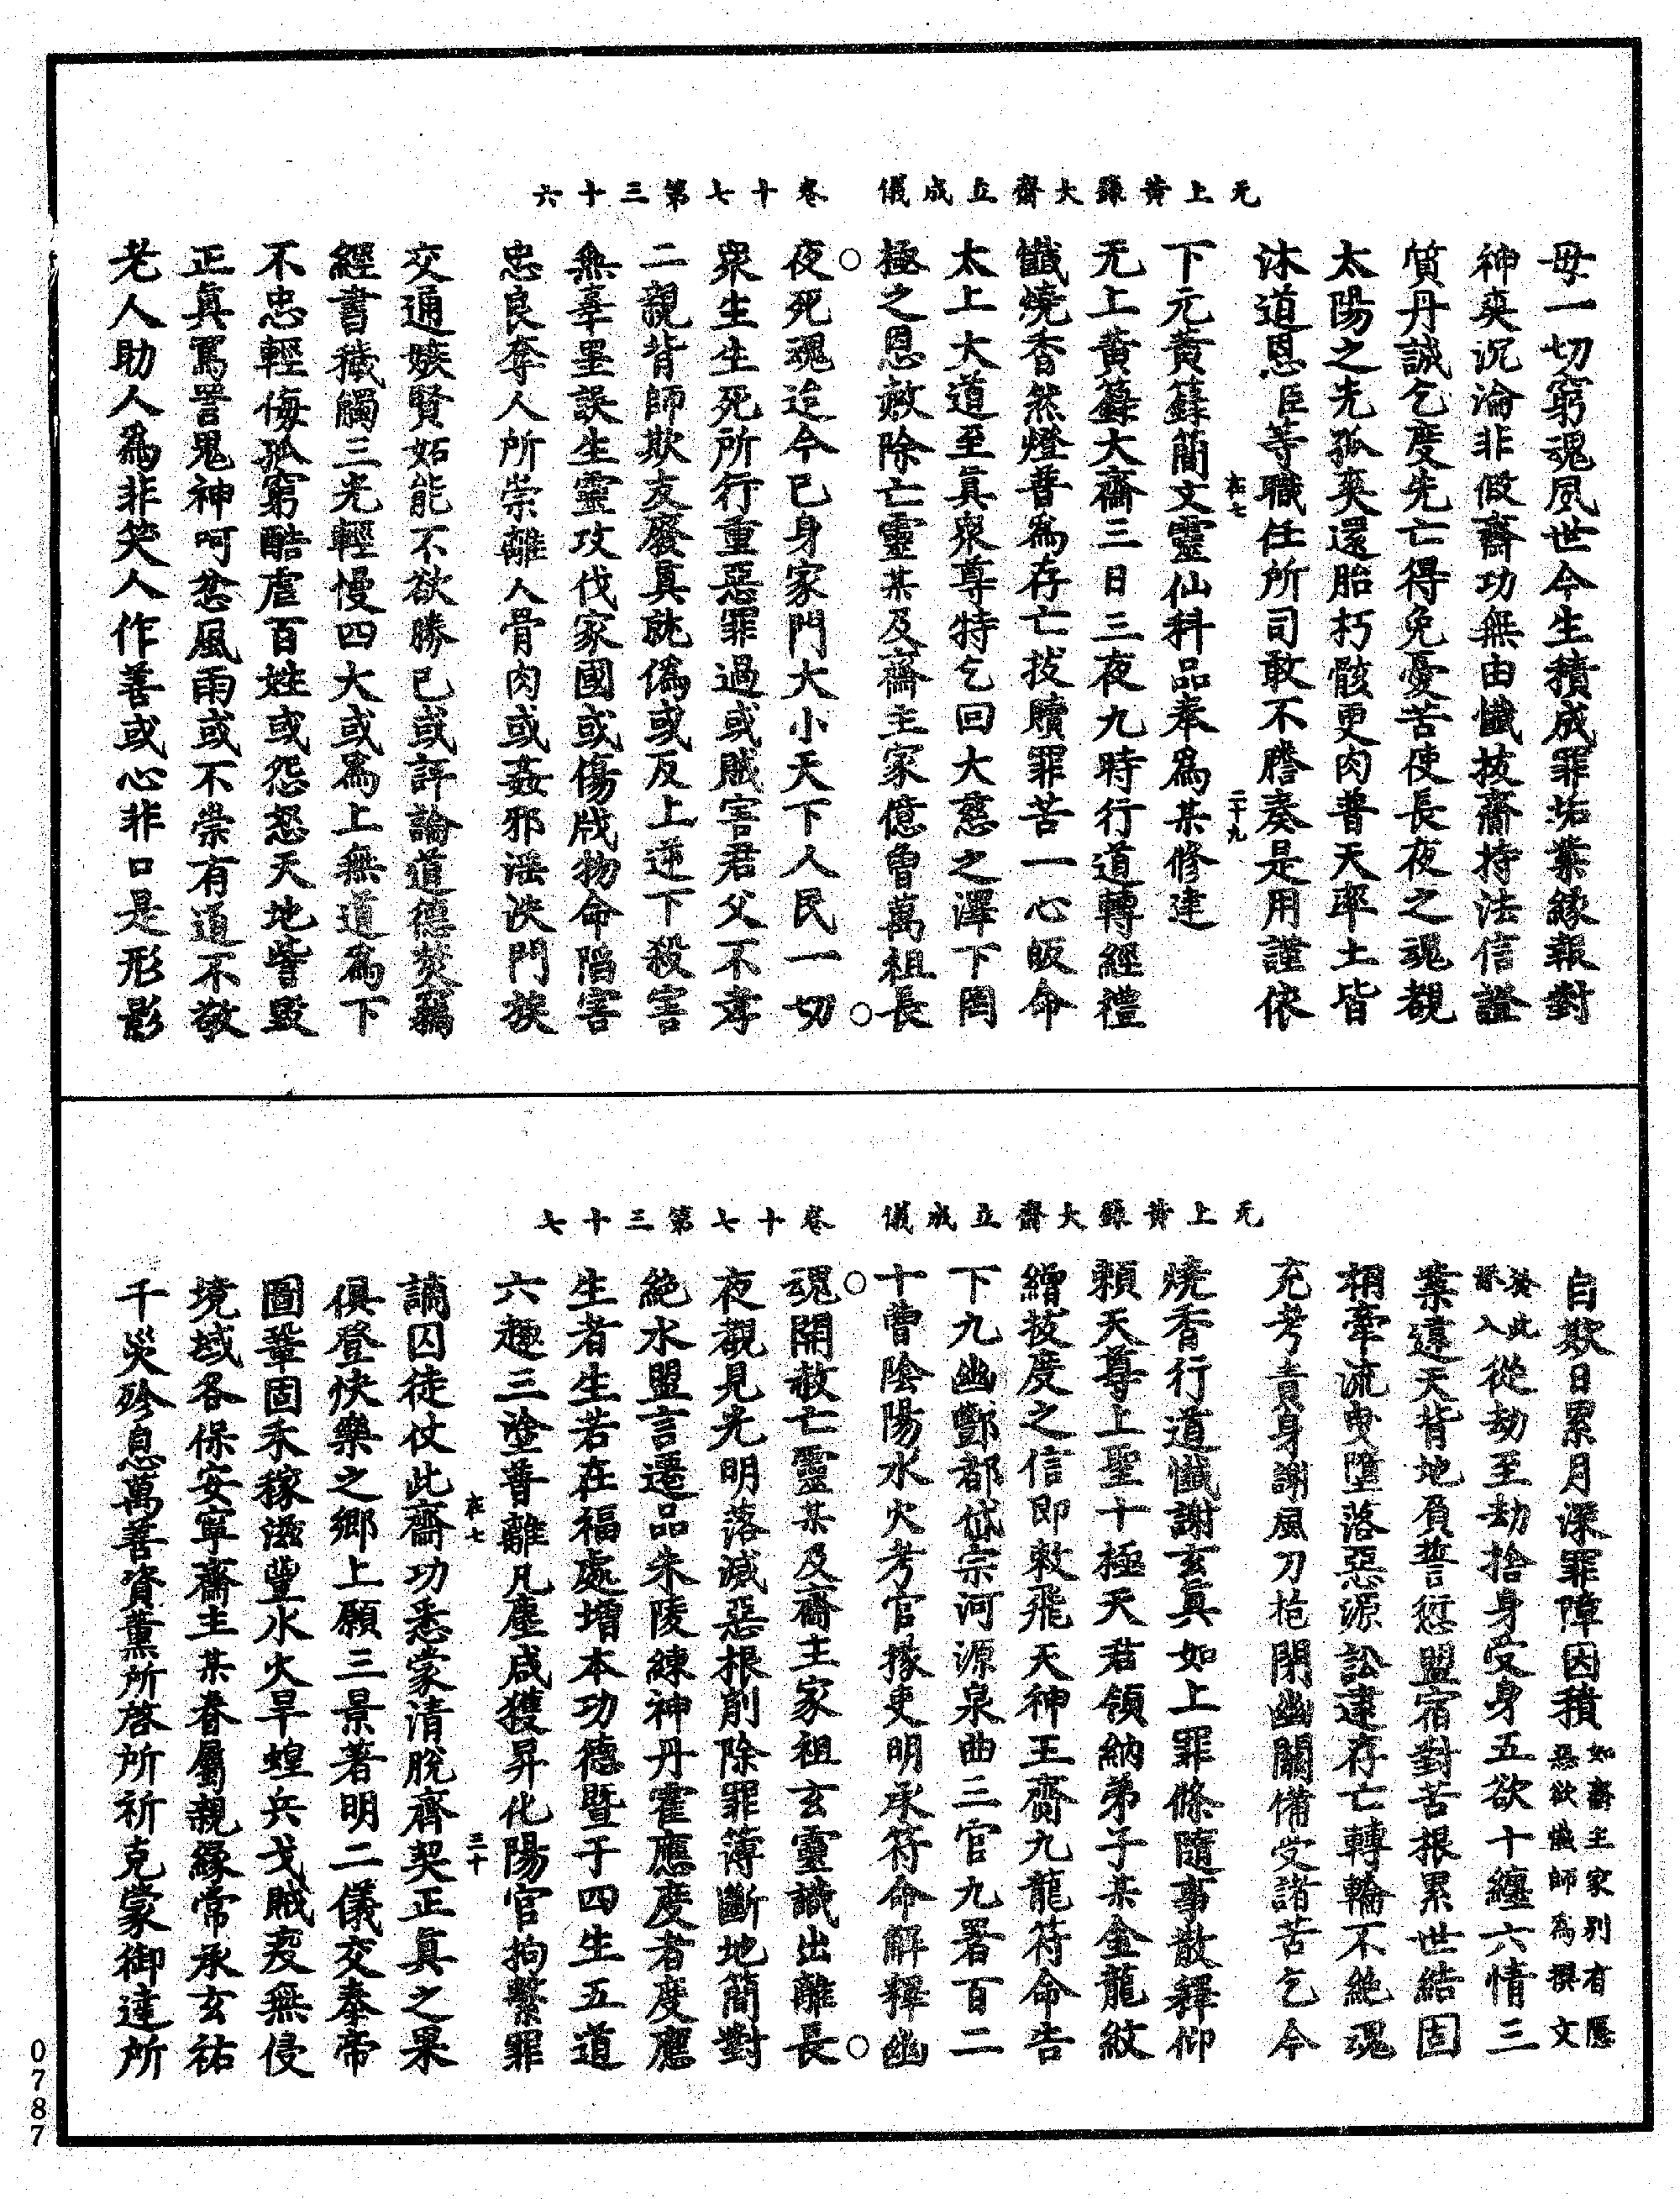 无上黃籙大齋立成儀　卷十七第三十六
毋一切窮魂夙世今生積成罪垢業緣報對
神爽沉淪非假齋功無由懺拔齋持法信證
質丹誠乞度先亡得免憂苦使長夜之魂覩
太陽之光孤爽還胎朽骸更肉普天率土皆
沐道恩臣等職任所司敢不謄奏是用謹依
在七　二十九
下元黃籙簡文靈仙科品奉爲某修建
无上黃籙大齋三日三夜九時行道轉經禮
懺燒香然燈普爲存亡拔贖罪苦一心皈命
太上大道至眞衆尊特乞回大慈之澤下罔
極之恩赦除亡靈某及齋主家億曾萬祖長
○　○
夜死魂迨今已身家門大小天下人民一切
衆生生死所行重惡罪過或賊害君父不孝
二親背師欺友廢眞就僞或反上逆下殺害
無辜罣誤生靈攻伐家國或傷戕物命陷害
忠良奪人所崇離人骨肉或姦邪滛泆門族
交通嫉賢妬能不欲勝已或評論道德焚竊
經書穢觸三光輕慢四大或爲上無道爲下
不忠輕侮孤窮酷虐百姓或怨怒天地訾毀
正眞罵詈鬼神呵忿風雨或不崇有道不敬
老人助人爲非笑人作善或心非口是形影
无上黃籙大齋立成儀　卷十七第三十七
自欺日累月深罪障因積如齋主家別有隱惡欲懺師爲撰文
於此詳入從劫至劫捨身受身五欲十纏六情三
業違天背地負誓愆盟宿對苦根累世結固
相牽流曳墮落惡源訟逮存亡轉輪不絶魂
充考責身謝風刀抱閉幽關備受諸苦乞今
燒香行道懺謝玄眞如上罪條隨事散釋仰
賴天尊上聖十極天君領納弟子某金龍紋
繒拔度之信即敕飛天神王齎九龍符命告
下九幽酆都岱宗河源泉曲三官九署百二
十曹陰陽水火考官掾吏明承符命解釋幽
○　○
魂開赦亡靈某及齋主家祖玄靈識出離長
夜覩見光明落滅惡根削除罪簿斷地簡對
絶水盟言遷品朱陵練神丹霍應度者度應
生者生若在福處增本功德暨于四生五道
六趣三塗普離凡塵咸獲昇化陽官拘繫罪
在七　三十
謫囚徒仗此齋功悉蒙清脫齊契正眞之果
俱登快樂之鄉上願三景著明二儀交泰帝
圖鞏固禾稼滋豐水火旱蝗兵戈賊疫無侵
境域各保安寧齋主某眷屬親緣常承玄祐
千災殄息萬善資薰所啓所祈克蒙御達所
0787